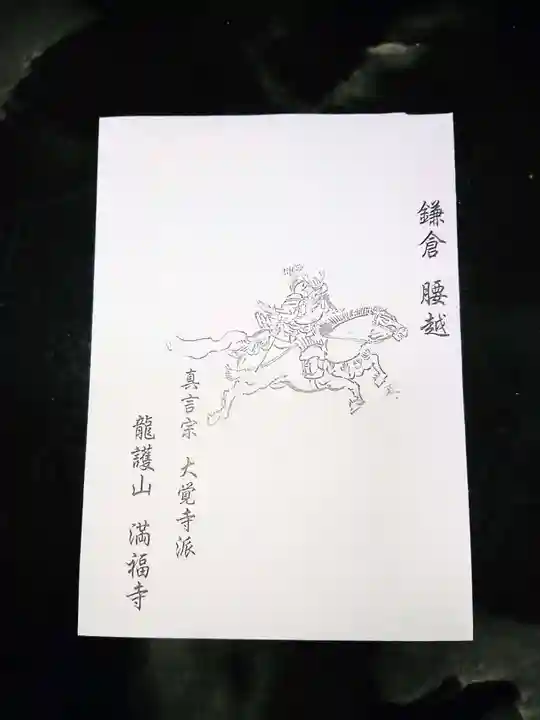 鎌倉 腰越
真言宗 大覚寺派
龍護山 満福寺